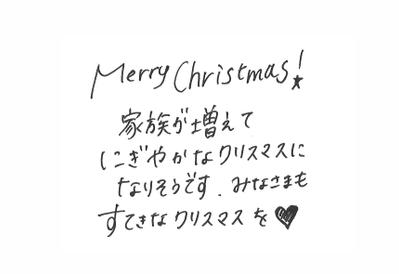 Merry Christmas!
家族が増えて
にぎやかなクリスマスに
なりそうです. みなさまも
すてきなクリスマスを♥